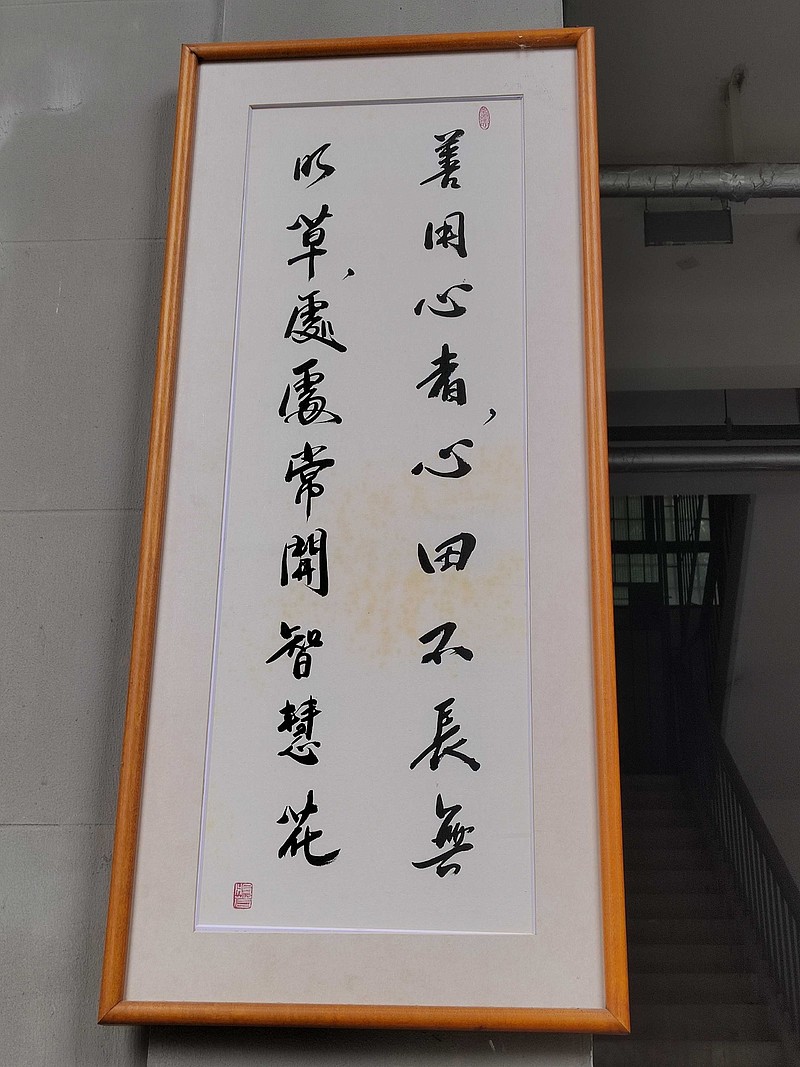 善用心者，心田不長無
明草，處處常開智慧花